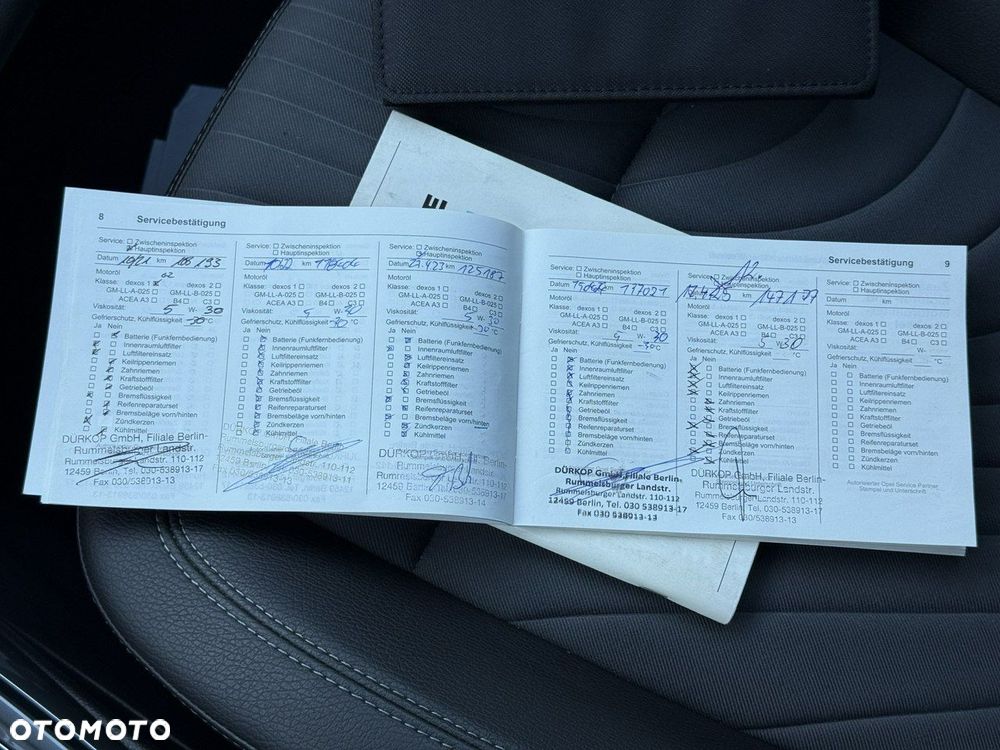 8 Servicebestätigung
Service: Zwischeninspektion
Hauptinspektion
Datum 10/21 km 106 195
Motoröl 02
Klasse: dexos 1 dexos 2
GM-LL-A-025 GM-LL-B-025
ACEA A3 B4 C3
Viskosität: 5 W- 30
Gefrierschutz, Kühlflüssigkeit -30 °C
Ja Nein
Batterie (Funkfernbedienung)
Innenraumluftfilter
Luftfiltereinsatz
Keilrippenriemen
Zahnriemen
Kraftstofffilter
Getriebeöl
Bremsflüssigkeit
Reifenreparaturset
Bremsbeläge vorn/hinten
Zündkerzen
Kühlmittel
DÜRKOP GmbH, Filiale Berlin-
Rummelsburger Landstr.
Rummelsburger Landstr. 110-112
12459 Berlin, Tel. 030-538913-17
Fax 030/538913-13
Service: Zwischeninspektion
Hauptinspektion
Datum km
Motoröl
Klasse: dexos 1 dexos 2
GM-LL-A-025 GM-LL-B-025
ACEA A3 B4 C3
Viskosität: 5 W- 30
Gefrierschutz, Kühlflüssigkeit -30 °C
Ja Nein
Batterie (Funkfernbedienung)
Innenraumluftfilter
Luftfiltereinsatz
Keilrippenriemen
Zahnriemen
Kraftstofffilter
Getriebeöl
Bremsflüssigkeit
Reifenreparaturset
Bremsbeläge vorn/hinten
Zündkerzen
Kühlmittel
Service: Zwischeninspektion
Hauptinspektion
Datum 27.4.23 km 125187
Motoröl
Klasse: dexos 1 dexos 2
GM-LL-A-025 GM-LL-B-025
ACEA A3 B4 C3
Viskosität: 5 W- 30
Gefrierschutz, Kühlflüssigkeit -30 °C
Ja Nein
Batterie (Funkfernbedienung)
Innenraumluftfilter
Luftfiltereinsatz
Keilrippenriemen
Zahnriemen
Kraftstofffilter
Getriebeöl
Bremsflüssigkeit
Reifenreparaturset
Bremsbeläge vorn/hinten
Zündkerzen
Kühlmittel
Fax 030-538913-14
Servicebestätigung 9
Service: Zwischeninspektion
Hauptinspektion
Datum km 137021
Motoröl
Klasse: dexos 1 dexos 2
GM-LL-A-025 GM-LL-B-025
ACEA A3 B4 C3
Viskosität: 5 W- 30
Gefrierschutz, Kühlflüssigkeit -30 °C
Ja Nein
Batterie (Funkfernbedienung)
Innenraumluftfilter
Luftfiltereinsatz
Keilrippenriemen
Zahnriemen
Kraftstofffilter
Getriebeöl
Bremsflüssigkeit
Reifenreparaturset
Bremsbeläge vorn/hinten
Zündkerzen
Kühlmittel
DÜRKOP GmbH, Filiale Berlin-
Rummelsburger Landstr.
Rummelsburger Landstr. 110-112
12459 Berlin, Tel. 030-538913-17
Fax 030 538913-13
Service: Zwischeninspektion
Hauptinspektion
17.4.25
Motoröl
Klasse: dexos 1 dexos 2
GM-LL-A-025 GM-LL-B-025
ACEA A3 B4 C3
Viskosität: 5 W- 30
Gefrierschutz, Kühlflüssigkeit °C
Ja Nein
Batterie (Funkfernbedienung)
Innenraumluftfilter
Luftfiltereinsatz
Keilrippenriemen
Zahnriemen
Kraftstofffilter
Getriebeöl
Bremsflüssigkeit
Reifenreparaturset
Bremsbeläge vorn/hinten
Zündkerzen
Kühlmittel
DÜRKOP GmbH, Filiale Berlin-
Rummelsburger Landstr.
Rummelsburger Landstr. 110-112
12459 Berlin, Tel. 030-538913-17
Fax 030/538913-13
Service: Zwischeninspektion
Hauptinspektion
Datum km
Motoröl
Klasse: dexos 1 dexos 2
GM-LL-A-025 GM-LL-B-025
ACEA A3 B4 C3
Viskosität: W-
Gefrierschutz, Kühlflüssigkeit °C
Ja Nein
Batterie (Funkfernbedienung)
Innenraumluftfilter
Luftfiltereinsatz
Keilrippenriemen
Zahnriemen
Kraftstofffilter
Getriebeöl
Bremsflüssigkeit
Reifenreparaturset
Bremsbeläge vorn/hinten
Zündkerzen
Kühlmittel
Autorisierter Opel Service Partner,
Stempel und Unterschrift
OTOMOTO